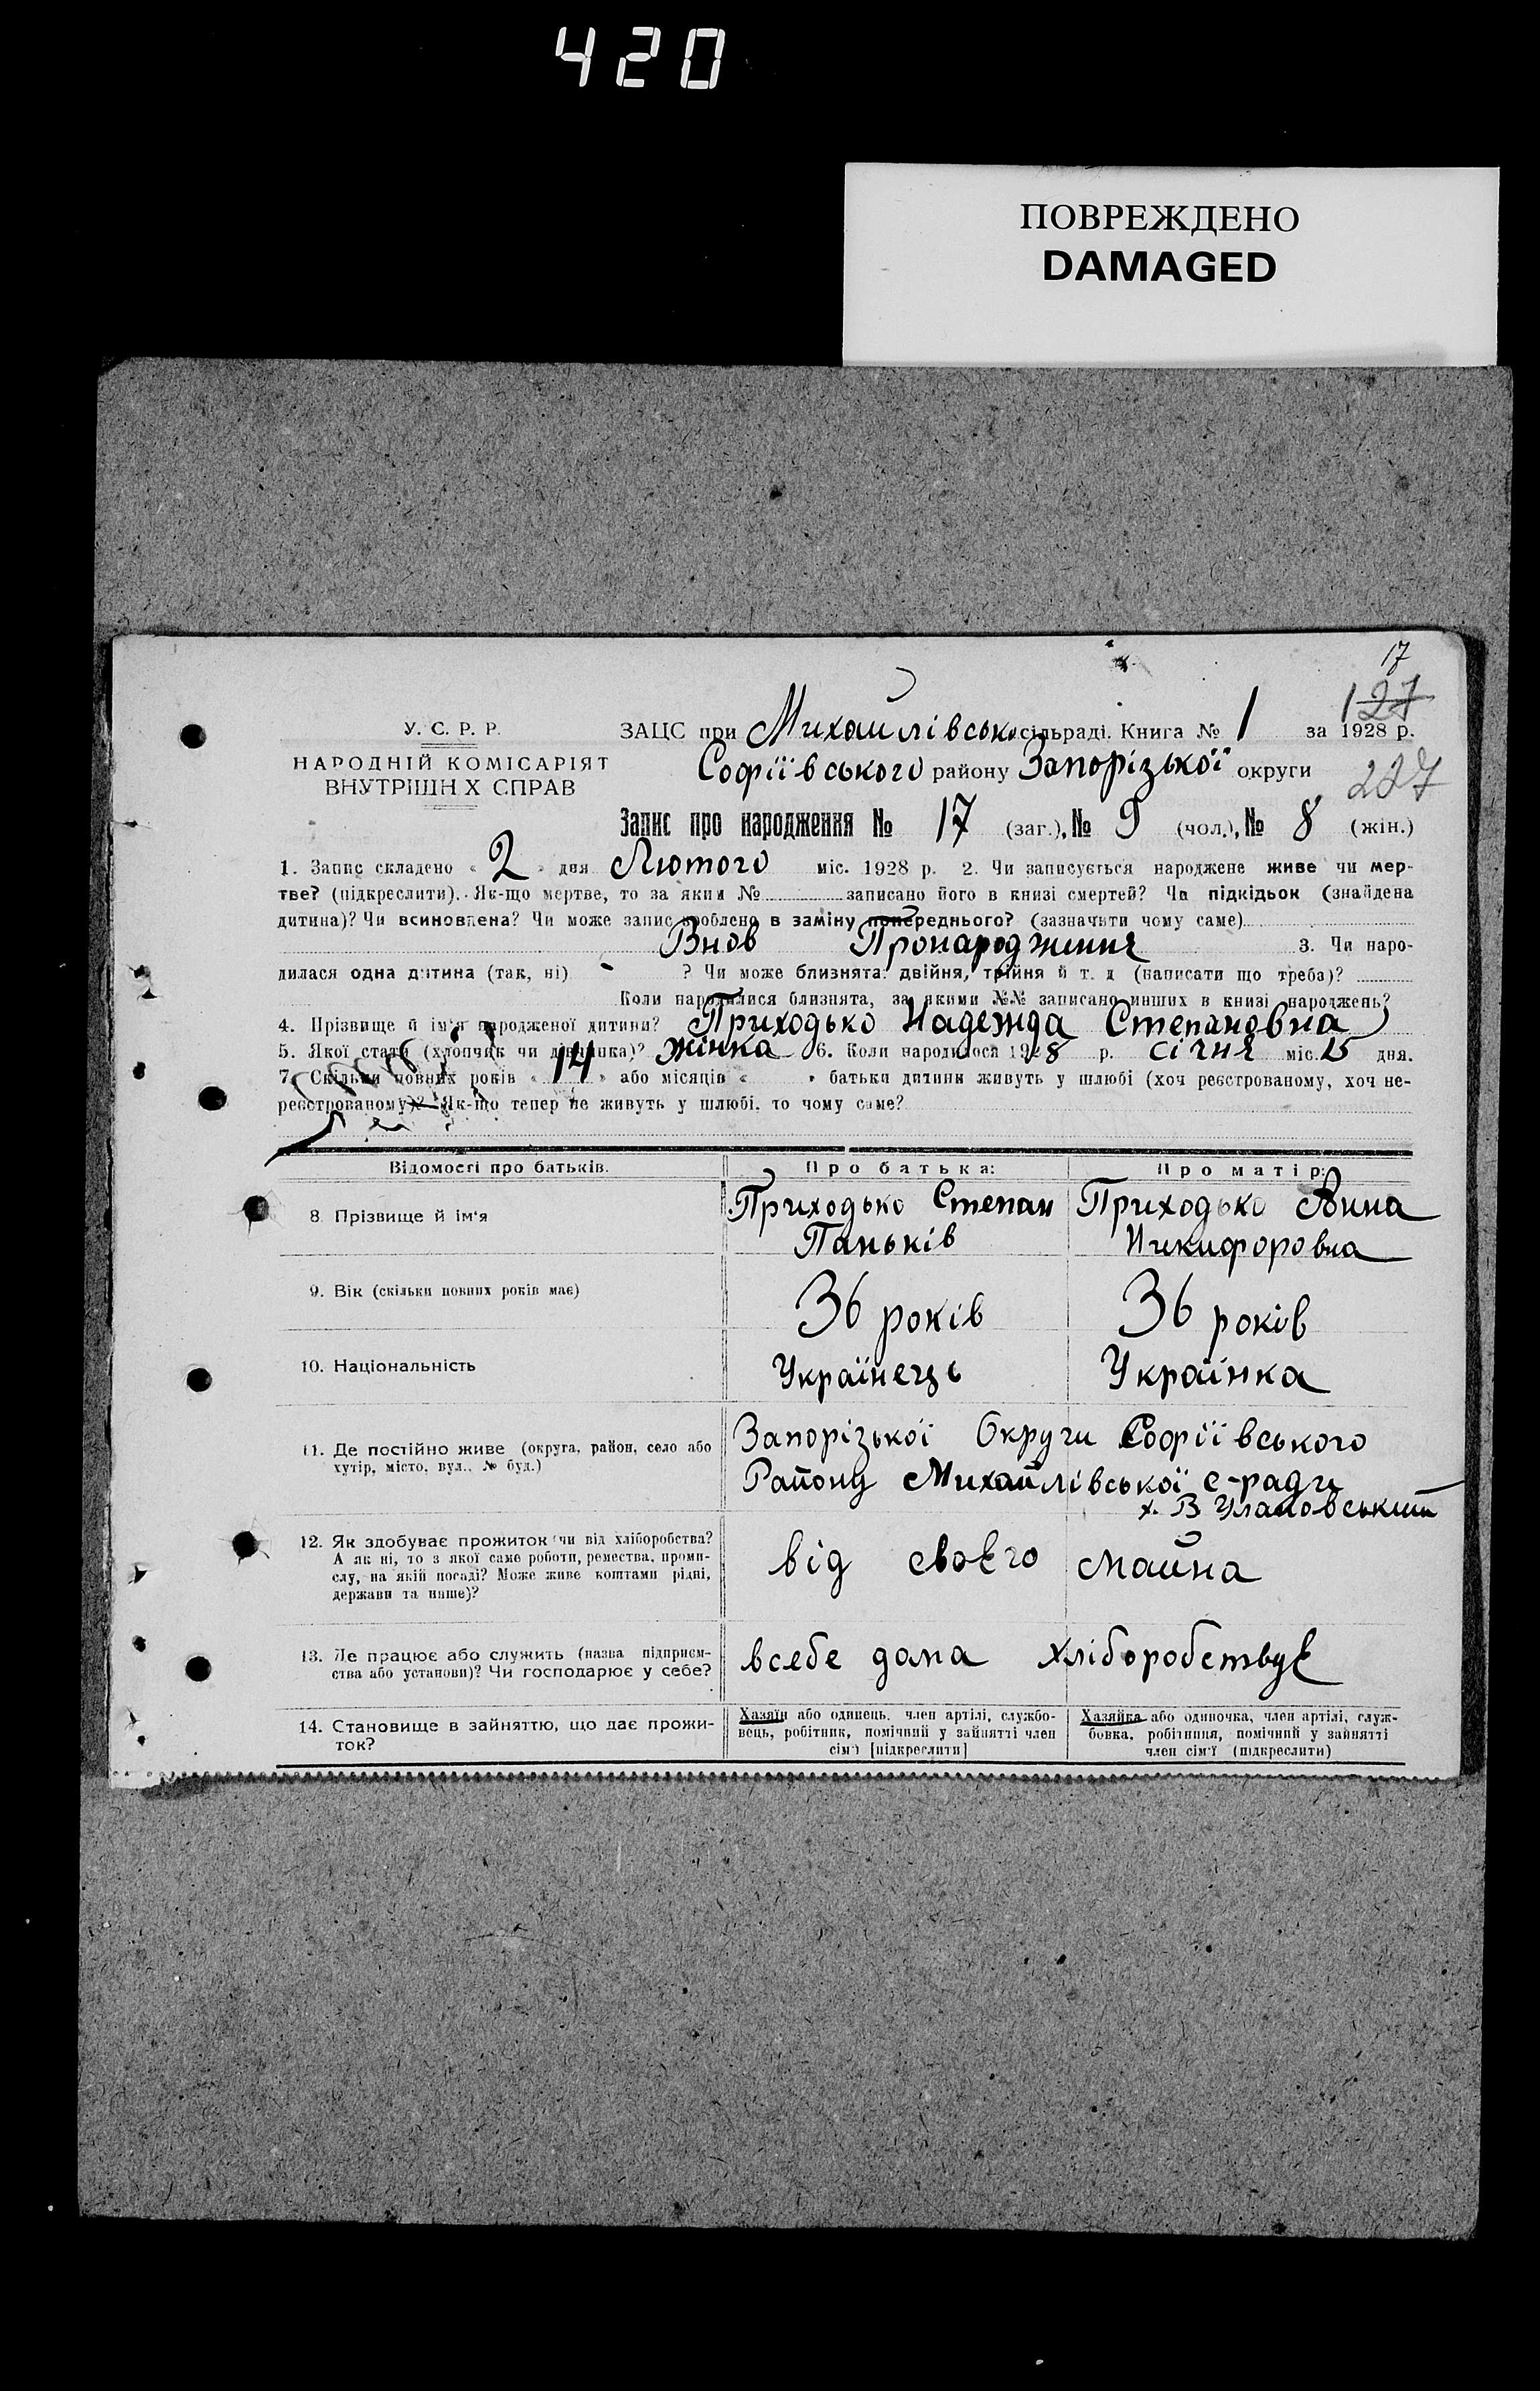 420
ПОВРЕЖДЕНО
DAMAGED
17
127
У. С. Р. Р. ЗАЦС при Михайлівськ. сільраді. Книга № 1 за 1928 р.
НАРОДНІЙ КОМІСАРІЯТ Софіївського району Запорізької округи 227
ВНУТРІШН Х СПРАВ
Запис про народження № 17 (заг.), № 9 (чол.), № 8 (жін.)
1. Запис складено « 2 » дня Лютого міс. 1928 р. 2. Чи записується народжене живе чи мер-
тве? (підкреслити). Як-що мертве, то за яким № записано його в книзі смертей? Чи підкідьок (знайдена
дитина)? Чи всиновлена? Чи може запис зроблено в заміну попереднього? (зазначити чому саме)
Внов Пронародження 3. Чи наро-
дилася одна дитина (так, ні) - ? Чи може близнята: двійня, трійня й т. д (написати що треба)?
Коли народилися близнята, за якими №№ записано инших в книзі народжень?
4. Прізвище й ім'я народженої дитини? Приходько Надежда Степановна
5. Якої статі (хлопчик чи дівчинка)? жінка 6. Коли народилося 1928 р. січня міс. 15 дня.
7. Скільки повних років « 14 » або місяців « » батьки дитини живуть у шлюбі (хоч реєстрованому, хоч не-
реєстрованому)? Як-що тепер не живуть у шлюбі, то чому саме?
Відомості про батьків. Про батька: Про матір:
8. Прізвище й ім'я Приходько Степан Приходько Анна
Паньків Никифоровна
9. Вік (скільки повних років має) 36 років 36 років
10. Національність Українець Українка
11. Де постійно живе (округа, район, село або Запорізької Округи Софіївського
хутір, місто, вул., № буд.) Району Михайлівської с-ради
х. В Улановський
12. Як здобуває прожиток (чи від хліборобства?
А як ні, то з якої саме роботи, ремества, проми- від своєго майна
слу, на якій посаді? Може живе коштами рідні,
держави та инше)?
13. Де працює або служить (назва підприєм- всебе дома хліборобствує
ства або установи)? Чи господарює у себе?
14. Становище в зайняттю, що дає прожи- Хазяїн або одинець, член артілі, службо- Хазяйка або одиночка, член артілі, служ-
ток? вець, робітник, помічний у зайнятті член бовка, робітниця, помічний у зайнятті
сім'ї [підкреслити] член сім'ї (підкреслити)